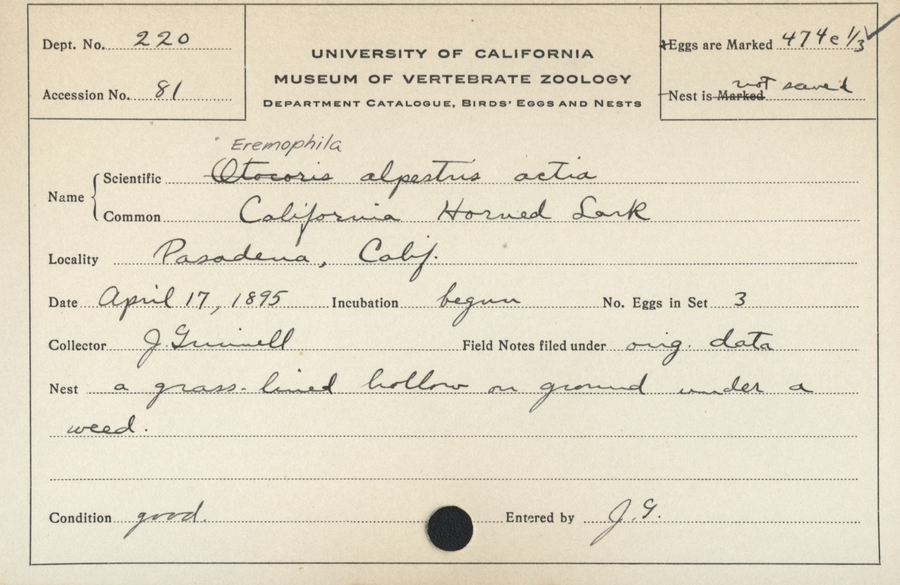 Dept. No. 220
Accession No. 81
UNIVERSITY OF CALIFORNIA
MUSEUM OF VERTEBRATE ZOOLOGY
DEPARTMENT CATALOGUE, BIRDS' EGGS AND NESTS
Eggs are Marked 474e 1/3
not saved
Nest is Marked
Eremophila
Name
Scientific Otocoris alpestris actia
Common California Horned Lark
Locality Pasadena, Calif.
Date April 17, 1895 Incubation begun No. Eggs in Set 3
Collector J. Grinnell Field Notes filed under orig. data
Nest a grass-lined hollow on ground under a
weed.
Condition good. Entered by J. G.